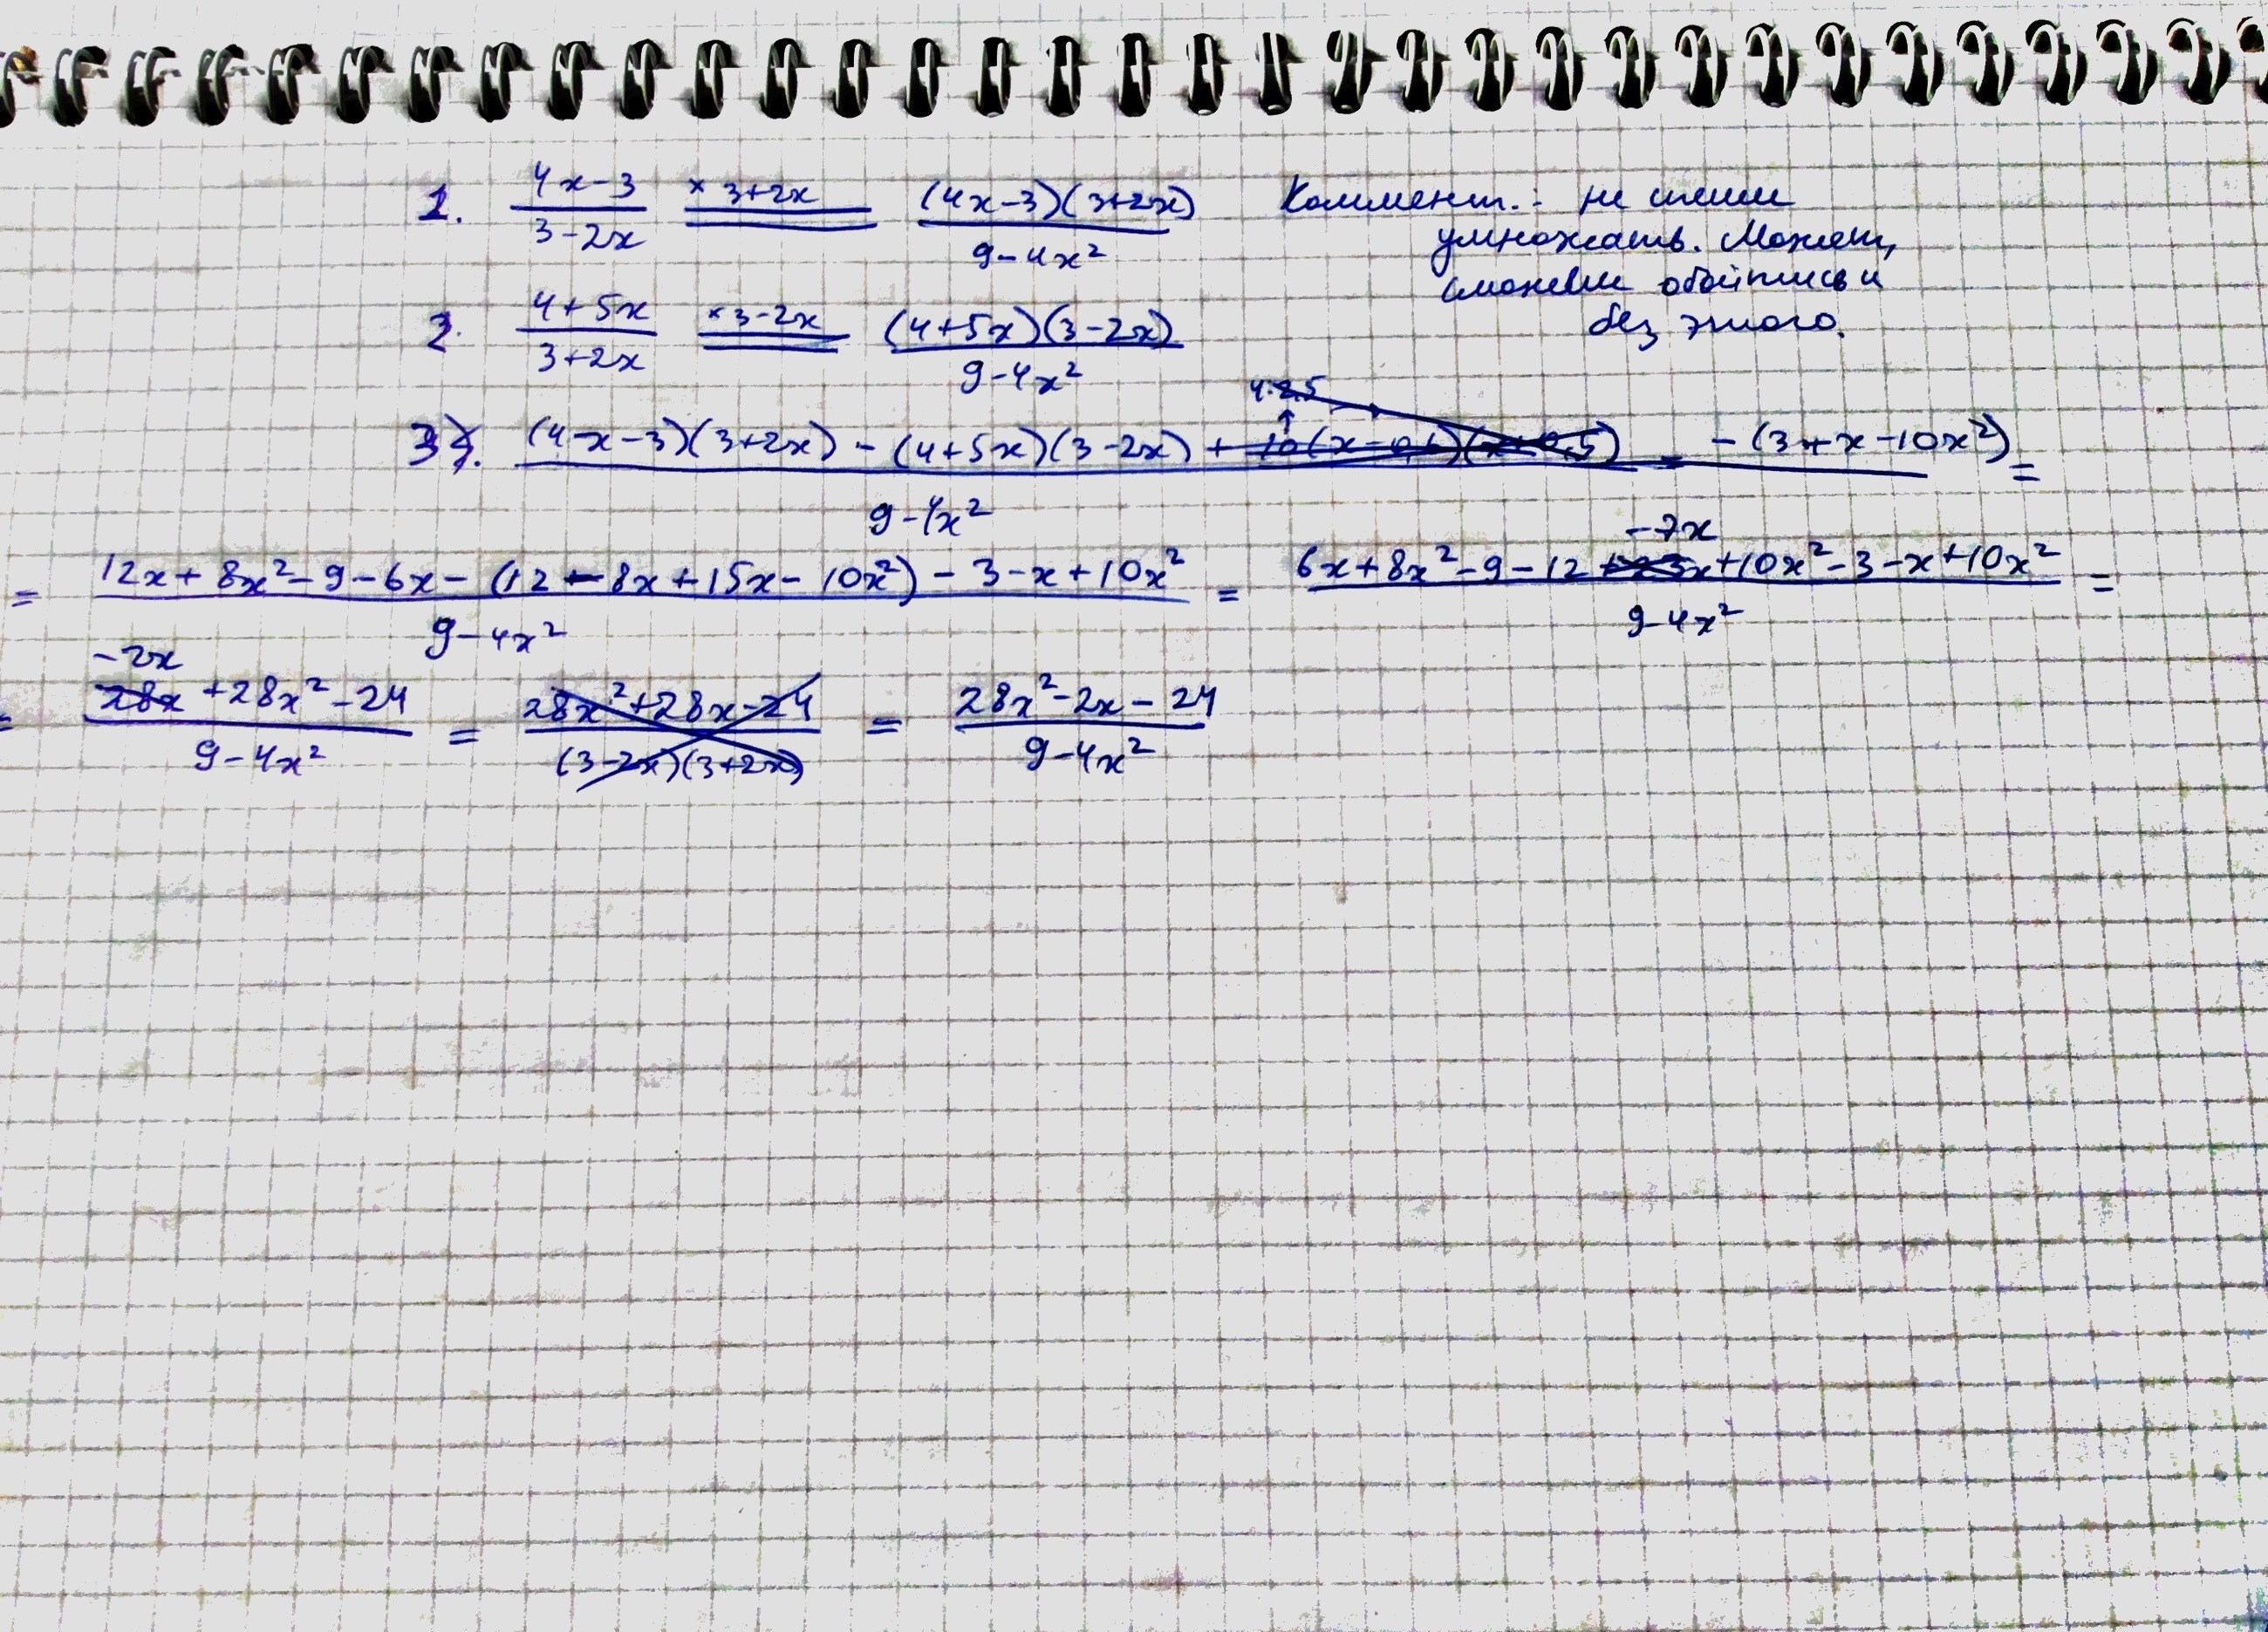 1. (4x-3)/(3-2x) × 3+2x = ((4x-3)(3+2x))/(9-4x²) Коммент.: не спеши
умножать. Может,
сможешь обойтись и
без этого.
2. (4+5x)/(3+2x) × 3-2x = ((4+5x)(3-2x))/(9-4x²)
3. ((4x-3)(3+2x) - (4+5x)(3-2x) + - (3+x-10x²))/(9-4x²) =
= (12x+8x²-9-6x-(12-8x+15x-10x²)-3-x+10x²)/(9-4x²) = (6x+8x²-9-12-7x+10x²-3-x+10x²)/(9-4x²) =
= (-2x+28x²-24)/(9-4x²) = (28x²+28x-24)/((3-2x)(3+2x)) = (28x²-2x-24)/(9-4x²)